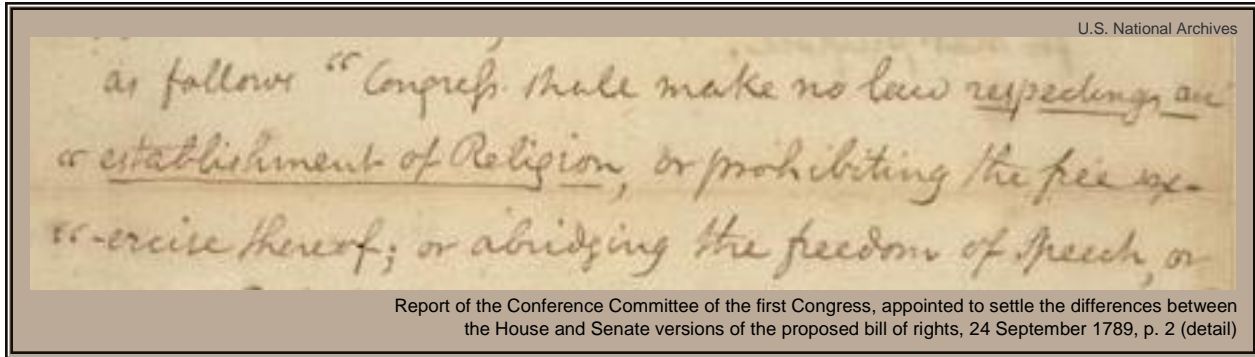 U.S. National Archives
as follows “Congreſs shall make no law respecting an
“ establishment of Religion, or prohibiting the free ex-
“-ercise thereof; or abridging the freedom of Speech, or
Report of the Conference Committee of the first Congress, appointed to settle the differences between
the House and Senate versions of the proposed bill of rights, 24 September 1789, p. 2 (detail)